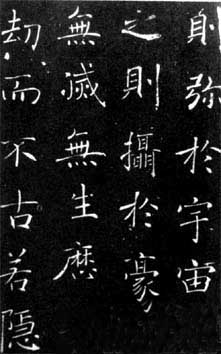 則弥於宇宙
之則攝於豪
無滅無生歷
劫而不古若隱